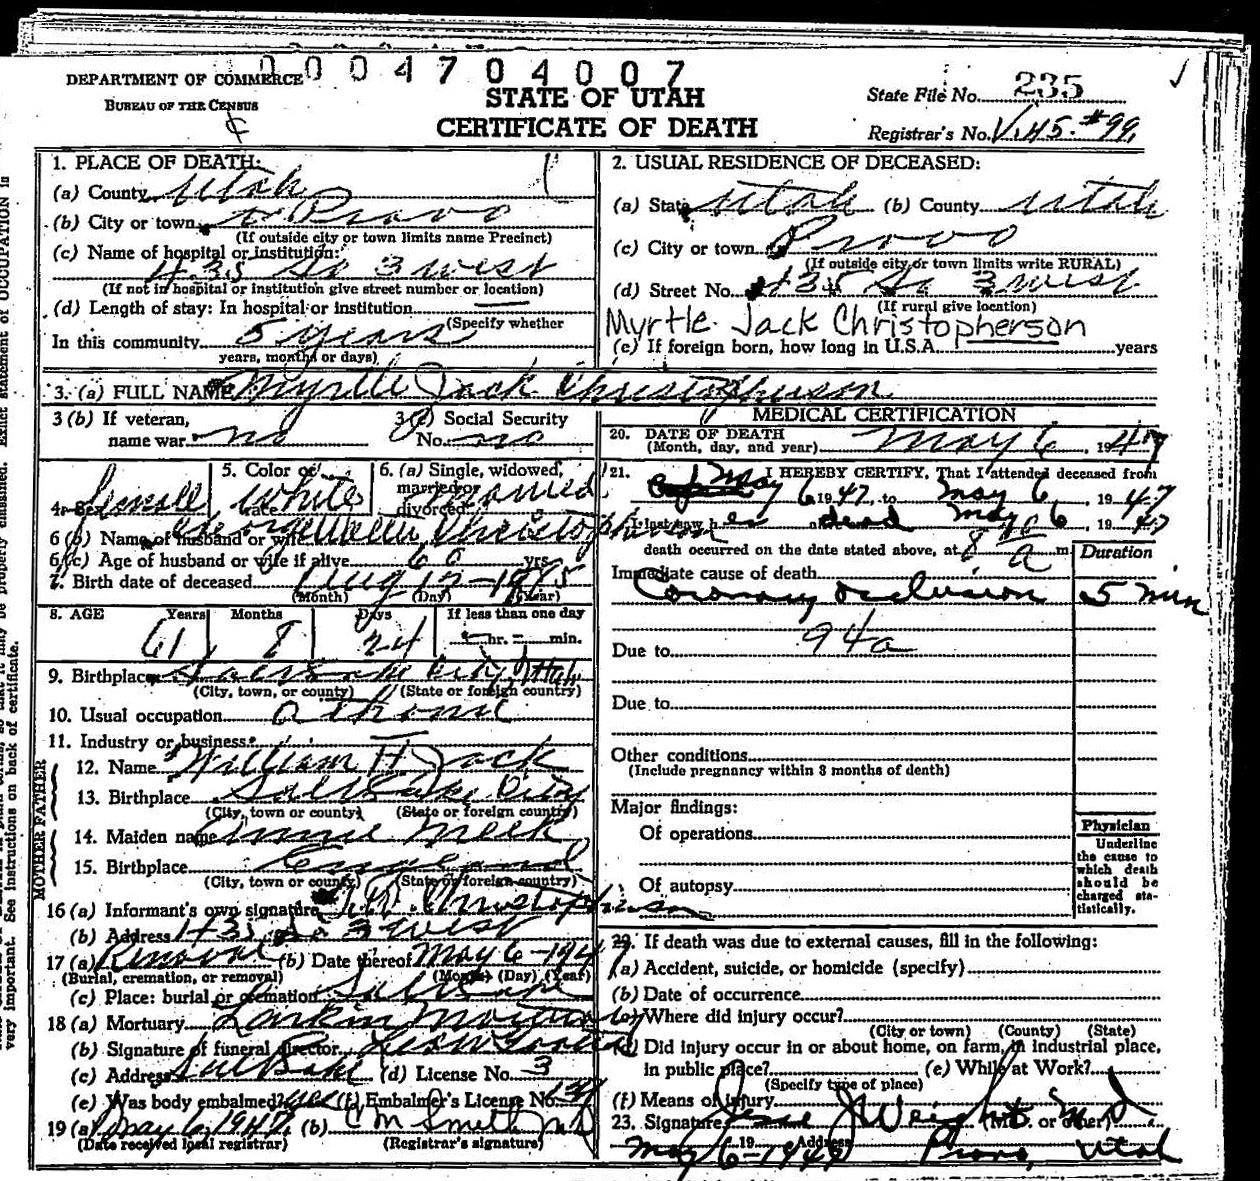 0004704007
DEPARTMENT OF COMMERCE
BUREAU OF THE CENSUS
STATE OF UTAH
CERTIFICATE OF DEATH
State File No. 235
Registrar's No. V.45.#99
1. PLACE OF DEATH:
(a) County Utah
(b) City or town Provo
(If outside city or town limits name Precinct)
(c) Name of hospital or institution:
435 So 3 west
(If not in hospital or institution give street number or location)
(d) Length of stay: In hospital or institution —
(Specify whether
In this community 5 years
years, months or days)
2. USUAL RESIDENCE OF DECEASED:
(a) State Utah (b) County Utah
(c) City or town Provo
(If outside city or town limits write RURAL)
(d) Street No. 435 So 3 west
(If rural give location)
Myrtle Jack Christopherson
(e) If foreign born, how long in U.S.A. years
3. (a) FULL NAME Myrtle Jack Christopherson
3 (b) If veteran,
name war. no
3 (c) Social Security
No. no
4. Sex Female
5. Color or
race White
6. (a) Single, widowed,
married or
divorced Married
6 (b) Name of husband or wife George Christopherson
6 (c) Age of husband or wife if alive 60 yrs.
7. Birth date of deceased Aug 12-1885
(Month) (Day) (Year)
8. AGE Years Months Days If less than one day
61 8 24 hr. min.
9. Birthplace Salt Lake City, Utah
(City, town, or county) (State or foreign country)
10. Usual occupation at home
11. Industry or business —
MOTHER FATHER
12. Name William H Jack
13. Birthplace Salt Lake City
(City, town or county) (State or foreign country)
14. Maiden name Annie Meek
15. Birthplace England
(City, town or county) (State or foreign country)
16 (a) Informant's own signature Christopherson
(b) Address 435 So 3 west
17 (a) Removal (b) Date thereof May 6-1947
(Burial, cremation, or removal) (Month) (Day) (Year)
(c) Place: burial or cremation Salt Lake
18 (a) Mortuary Larkin Mortuary
(b) Signature of funeral director
(c) Address Salt Lake (d) License No. 3
(e) Was body embalmed? yes (f) Embalmer's License No.
19 (a) May 6, 1947 (b) C M Smith MD
(Date received local registrar) (Registrar's signature)
MEDICAL CERTIFICATION
20. DATE OF DEATH
(Month, day, and year) May 6, 1947
21. I HEREBY CERTIFY, That I attended deceased from
May 6 1947, to May 6, 1947
I last saw her dead May 6, 1947
death occurred on the date stated above, at 8 a m
Duration
Immediate cause of death
Coronary occlusion 5 min
94a
Due to
Due to
Other conditions
(Include pregnancy within 3 months of death)
Major findings:
Of operations
Of autopsy
Physician
Underline
the cause to
which death
should be
charged sta-
tistically.
22. If death was due to external causes, fill in the following:
(a) Accident, suicide, or homicide (specify)
(b) Date of occurrence
(c) Where did injury occur?
(City or town) (County) (State)
(d) Did injury occur in or about home, on farm, in industrial place,
in public place? (e) While at Work?
(Specify type of place)
(f) Means of injury
23. Signature J Weight M.D. (M.D. or other)
19 Address
May 6-1947 Provo, Utah
very important. See instructions on back of certificate.